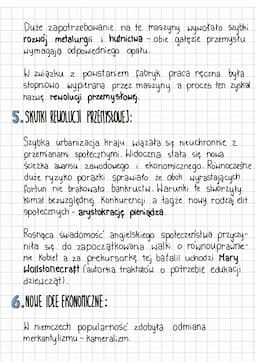 Duże zapotrzebowanie na te maszyny wywołało szybki
rozwój metalurgii i hutnictwa - obie gałęzie przemysłu
wymagają odpowiedniego opału.
W związku z powstaniem fabryk praca ręczna była
stopniowo wypierana przez maszyny a proces ten zyskał
nazwę rewolucji przemysłowej.
5. SKUTKI REWOLUCJI PRZEMYSŁOWEJ:
Szybka urbanizacja kraju wiązała się nieuchronnie z
przemianami społecznymi. Widoczna stała się nowa
ścieżka awansu zawodowego i ekonomicznego. Równocześnie
duże ryzyko porażki sprawiało że obok wyrastających
fortun nie brakowało bankructw. Warunki te stworzyły
klimat bezwzględnej konkurencji a także nowy rodzaj elit
społecznych - arystokrację pieniądza.
Rosnąca świadomość angielskiego społeczeństwa przyczy-
niła się do zapoczątkowania walki o równouprawnie-
nie kobiet a za prekursorkę tej batalii uchodzi Mary
Wollstonecraft (autorka traktatów o potrzebie edukacji
dziewcząt).
6. NOWE IDEE EKONOMICZNE:
W niemczech popularność zdobyła odmiana
merkantylizmu - kameralizm.